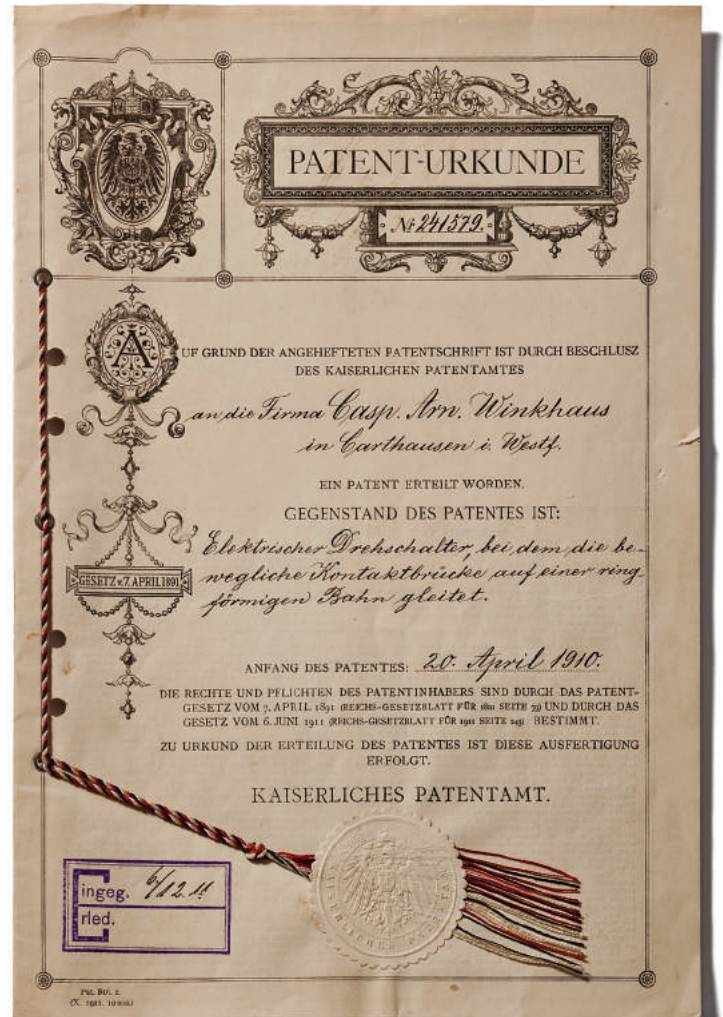 PATENT-URKUNDE
№ 241579.
AUF GRUND DER ANGEHEFTETEN PATENTSCHRIFT IST DURCH BESCHLUSZ
DES KAISERLICHEN PATENTAMTES
an die Firma Casp. Arn. Winkhaus
in Carthausen i. Westf.
EIN PATENT ERTEILT WORDEN.
GEGENSTAND DES PATENTES IST:
Elektrischer Drehschalter, bei dem die be-
wegliche Kontaktbrücke auf einer ring-
förmigen Bahn gleitet.
GESETZ v. 7. APRIL 1891
ANFANG DES PATENTES: 20. April 1910.
DIE RECHTE UND PFLICHTEN DES PATENTINHABERS SIND DURCH DAS PATENT-
GESETZ VOM 7. APRIL 1891 (REICHS-GESETZBLATT FÜR 1891 SEITE 79) UND DURCH DAS
GESETZ VOM 6. JUNI 1911 (REICHS-GESETZBLATT FÜR 1911 SEITE 243) BESTIMMT.
ZU URKUND DER ERTEILUNG DES PATENTES IST DIESE AUSFERTIGUNG
ERFOLGT.
KAISERLICHES PATENTAMT.
Eingeg. 6/12. 11
Erled.
KAISERLICHES PATENTAMT